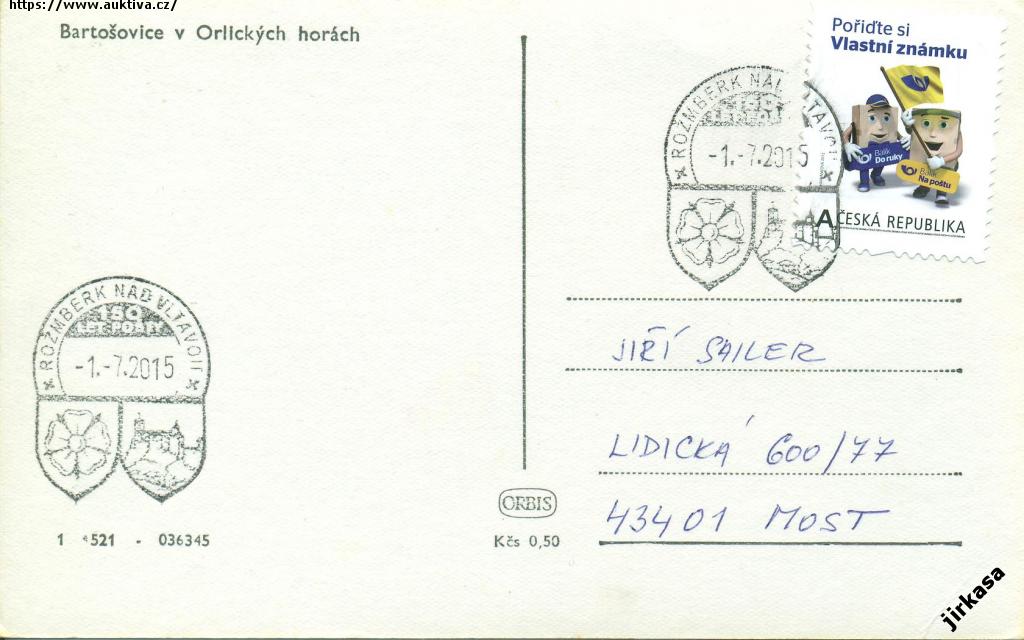 https://www.auktiva.cz/
Bartošovice v Orlických horách
Pořiďte si
Vlastní známku
Balík
Do ruky
Balík
Na poštu
A ČESKÁ REPUBLIKA
ROŽMBERK NAD VLTAVOU
150
LET POŠTY
-1.-7.2015
ROŽMBERK NAD VLTAVOU
150
LET POŠTY
-1.-7.2015
JIŘÍ SAILER
LIDICKÁ 600/77
43401 MOST
ORBIS
Kčs 0,50
1 521 - 036345
jirkasa